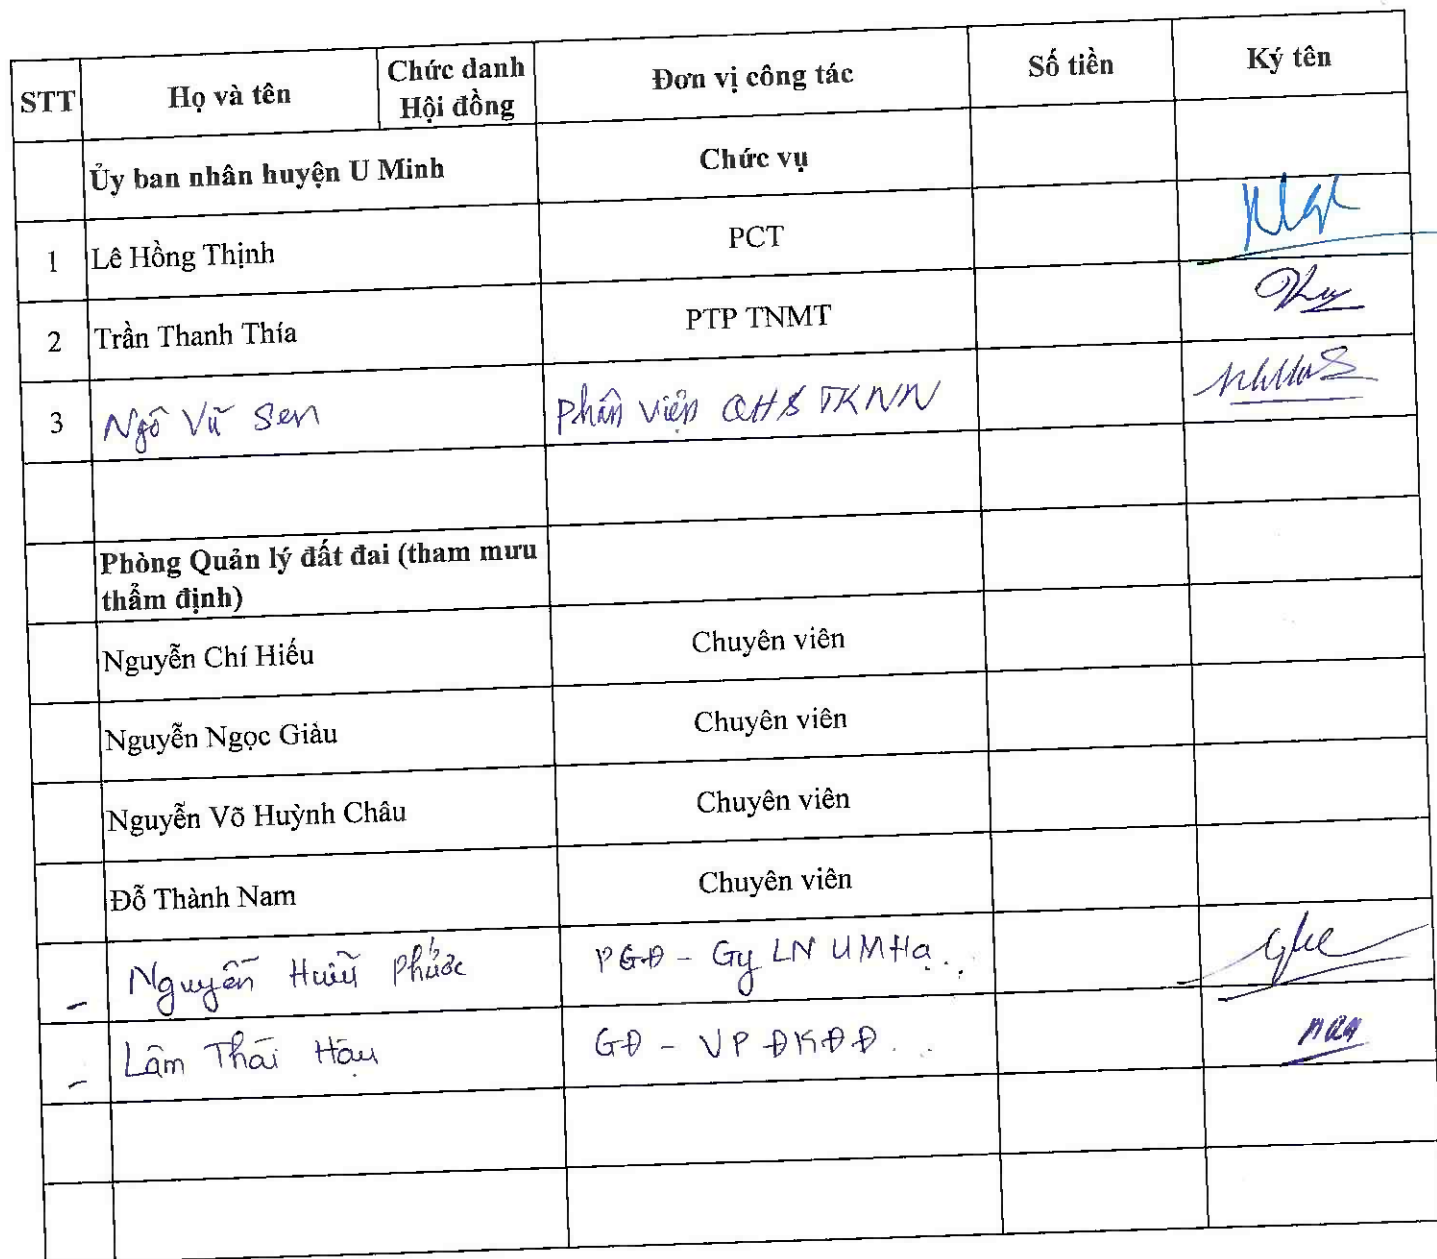 STT Họ và tên Chức danh Hội đồng Đơn vị công tác Số tiền Ký tên
Ủy ban nhân huyện U Minh Chức vụ
1 Lê Hồng Thịnh PCT
2 Trần Thanh Thía PTP TNMT
3 Ngô Vũ Sen Phân Viện QH & TKNN
Phòng Quản lý đất đai (tham mưu
thẩm định)
Nguyễn Chí Hiếu Chuyên viên
Nguyễn Ngọc Giàu Chuyên viên
Nguyễn Võ Huỳnh Châu Chuyên viên
Đỗ Thành Nam Chuyên viên
- Nguyễn Hữu Phước PGĐ - Cty LN UMHạ..
- Lâm Thái Hậu GĐ - VP ĐKĐĐ...